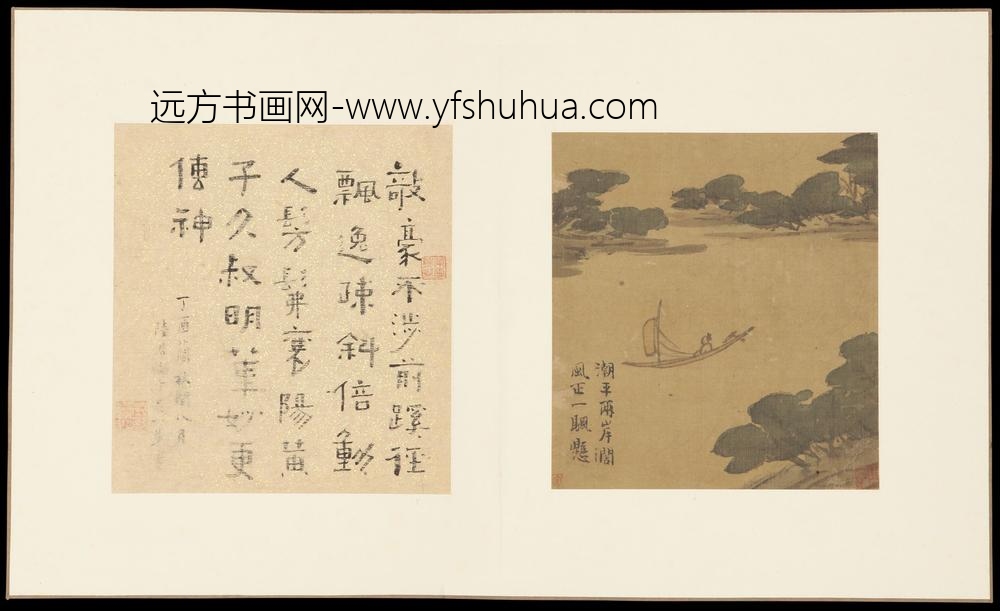 远方书画网-www.yfshuhua.com
豪不涉前蹊徑
飄逸疎斜倍動
人髣髴襄陽黃
子久叔明筆妙更
傳神
丁酉
潮平兩岸濶
風正一颿懸